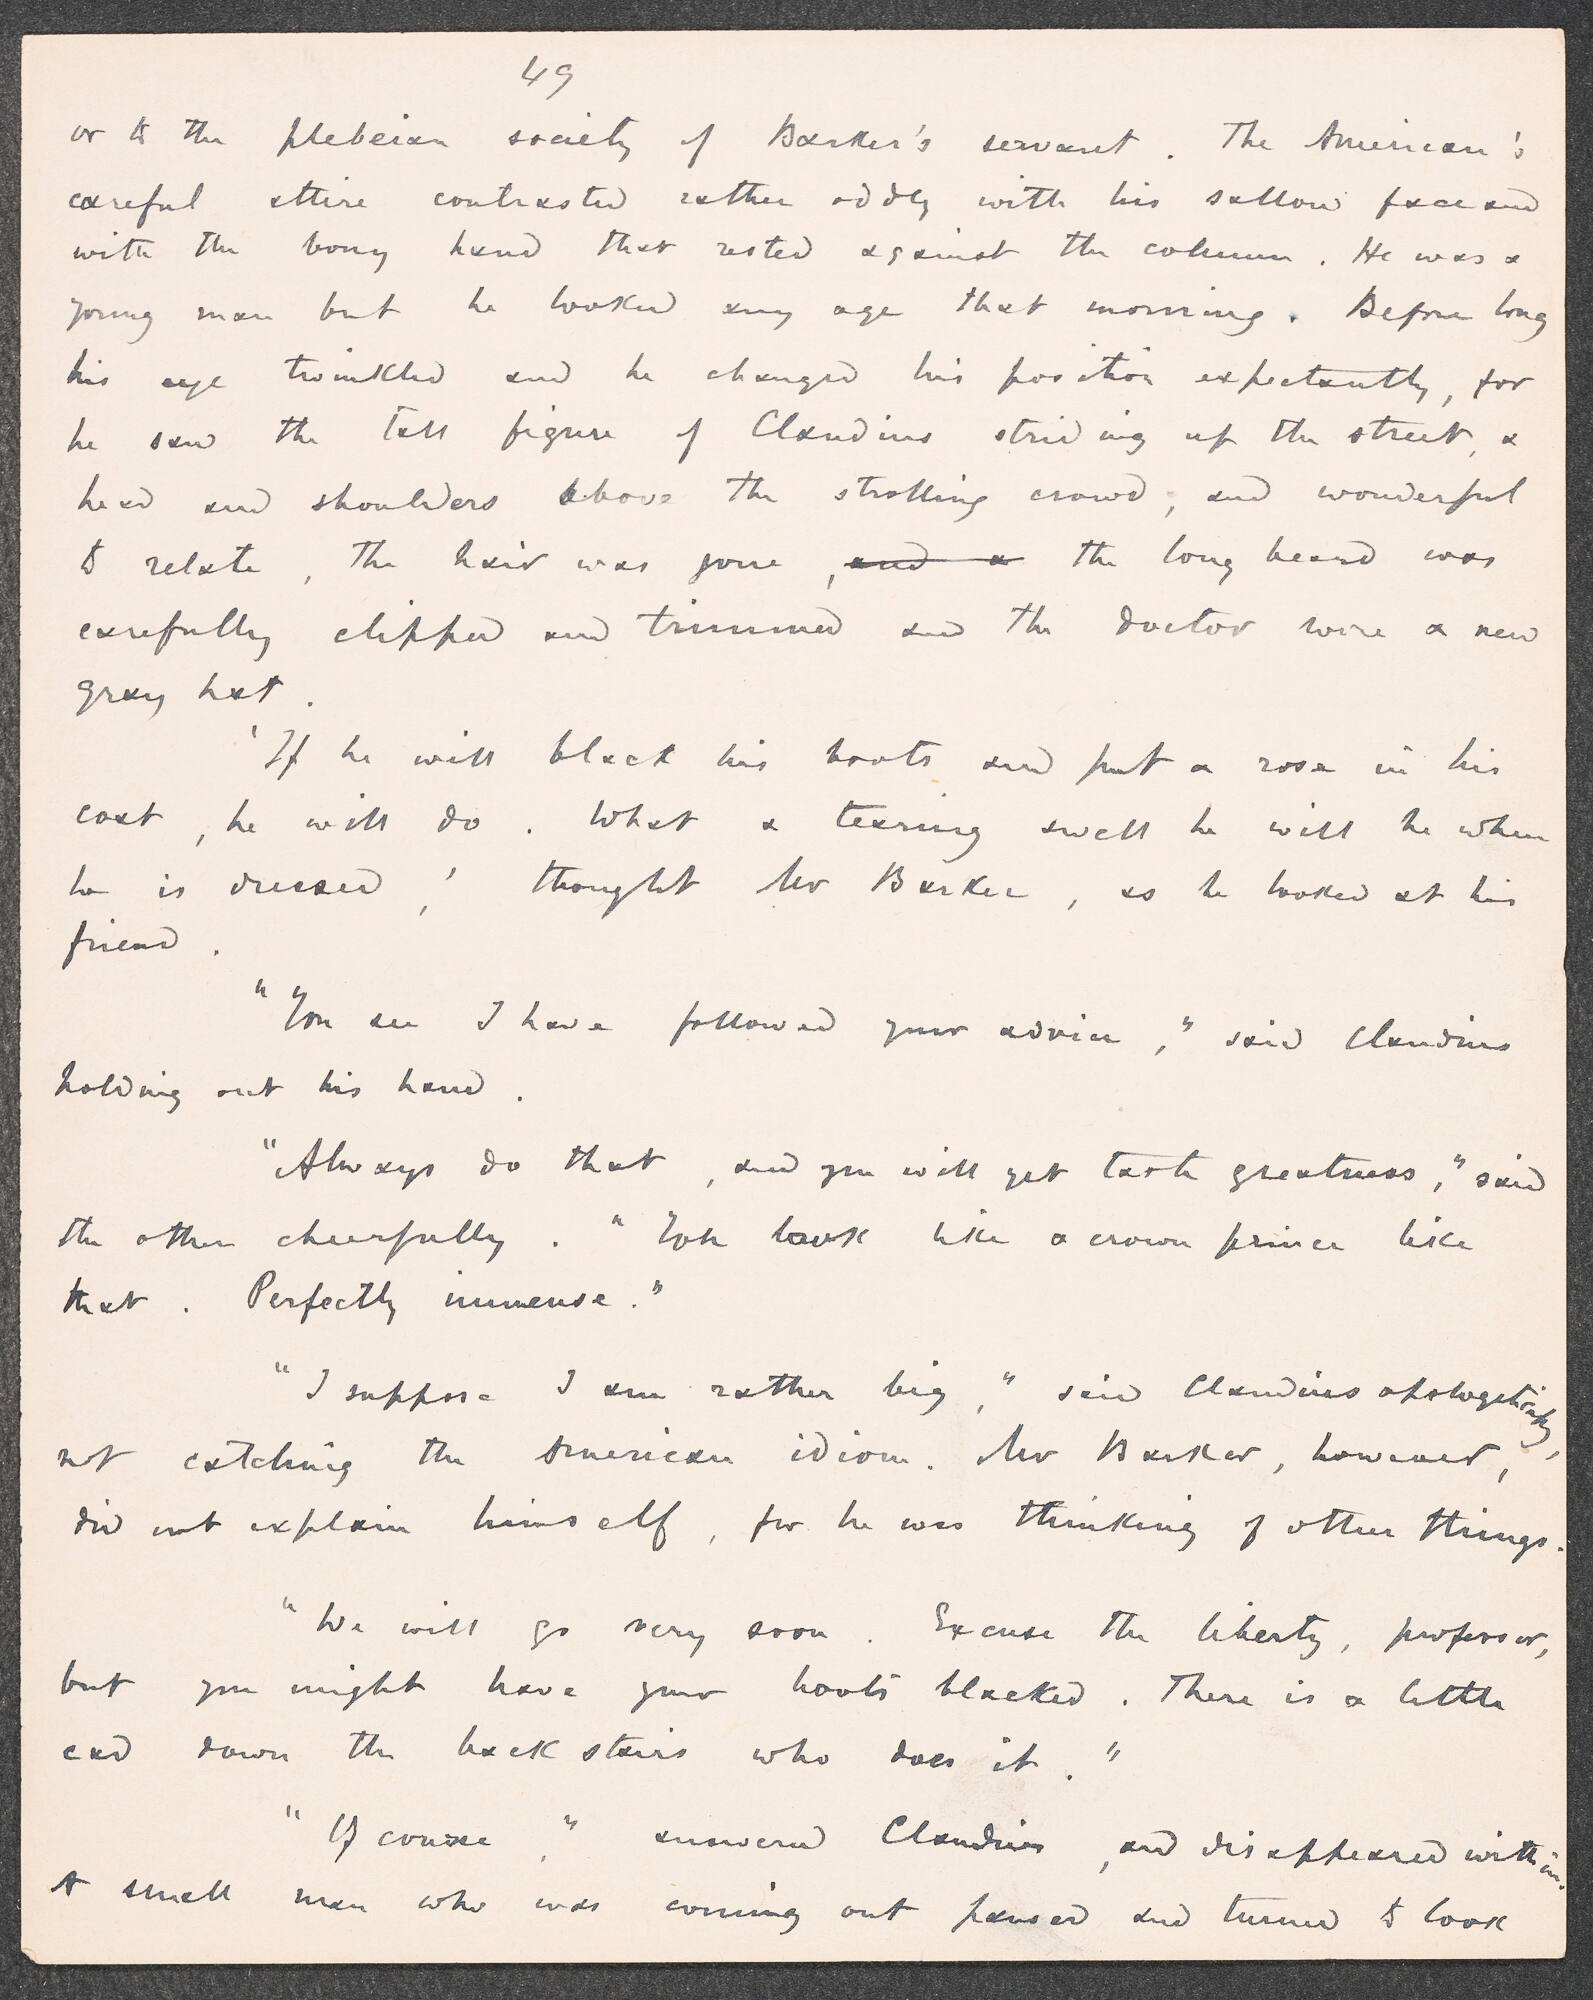 49
or to the plebeian society of Barker's servant. The American's
careful attire contrasted rather oddly with his sallow face and
with the bony hand that rested against the column. He was a
young man but he looked any age that morning. Before long
his eye twinkled and he changed his position expectantly, for
he saw the tall figure of Claudius striding up the street, a
head and shoulders above the strolling crowd, and wonderful
to relate, the hair was gone, and a the long beard was
carefully clipped and trimmed and the doctor wore a new
gray hat.
'If he will black his boots and put a rose in his
coat, he will do. What a tearing swell he will be when
he is dressed,' thought Mr Barker, as he looked at his
friend.
"You see I have followed your advice," said Claudius
holding out his hand.
"Always do that, and you will yet taste greatness," said
the other cheerfully. "You look like a crown prince like
that. Perfectly immense."
"I suppose I am rather big," said Claudius apologetically,
not catching the American idiom. Mr Barker, however,
did not explain himself, for he was thinking of other things.
"We will go very soon. Excuse the liberty, professor,
but you might have your boots blacked. There is a little
cad down the back stairs who does it."
"Of course," answered Claudius, and disappeared within.
A small man who was coming out paused and turned to look